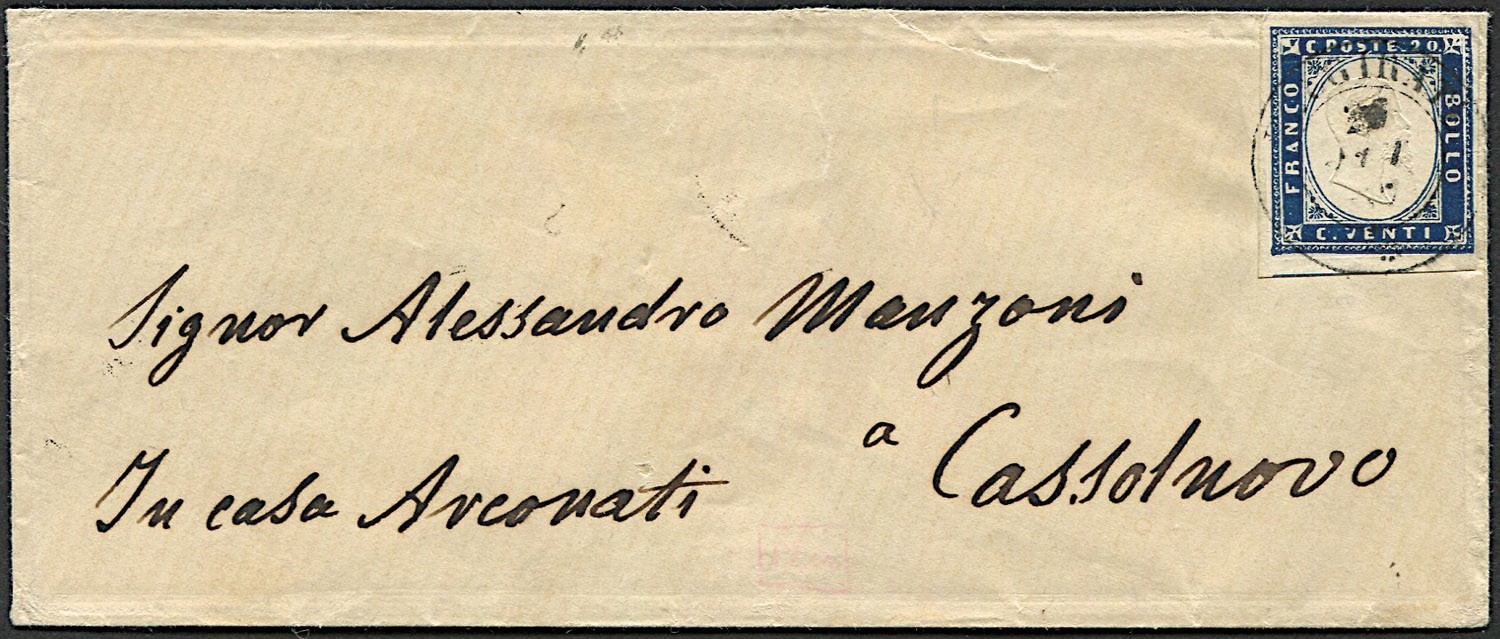 C. POSTE. 20
FRANCO
BOLLO
C. VENTI
Signor Alessandro Manzoni
a Cassolnovo
In casa Arconati